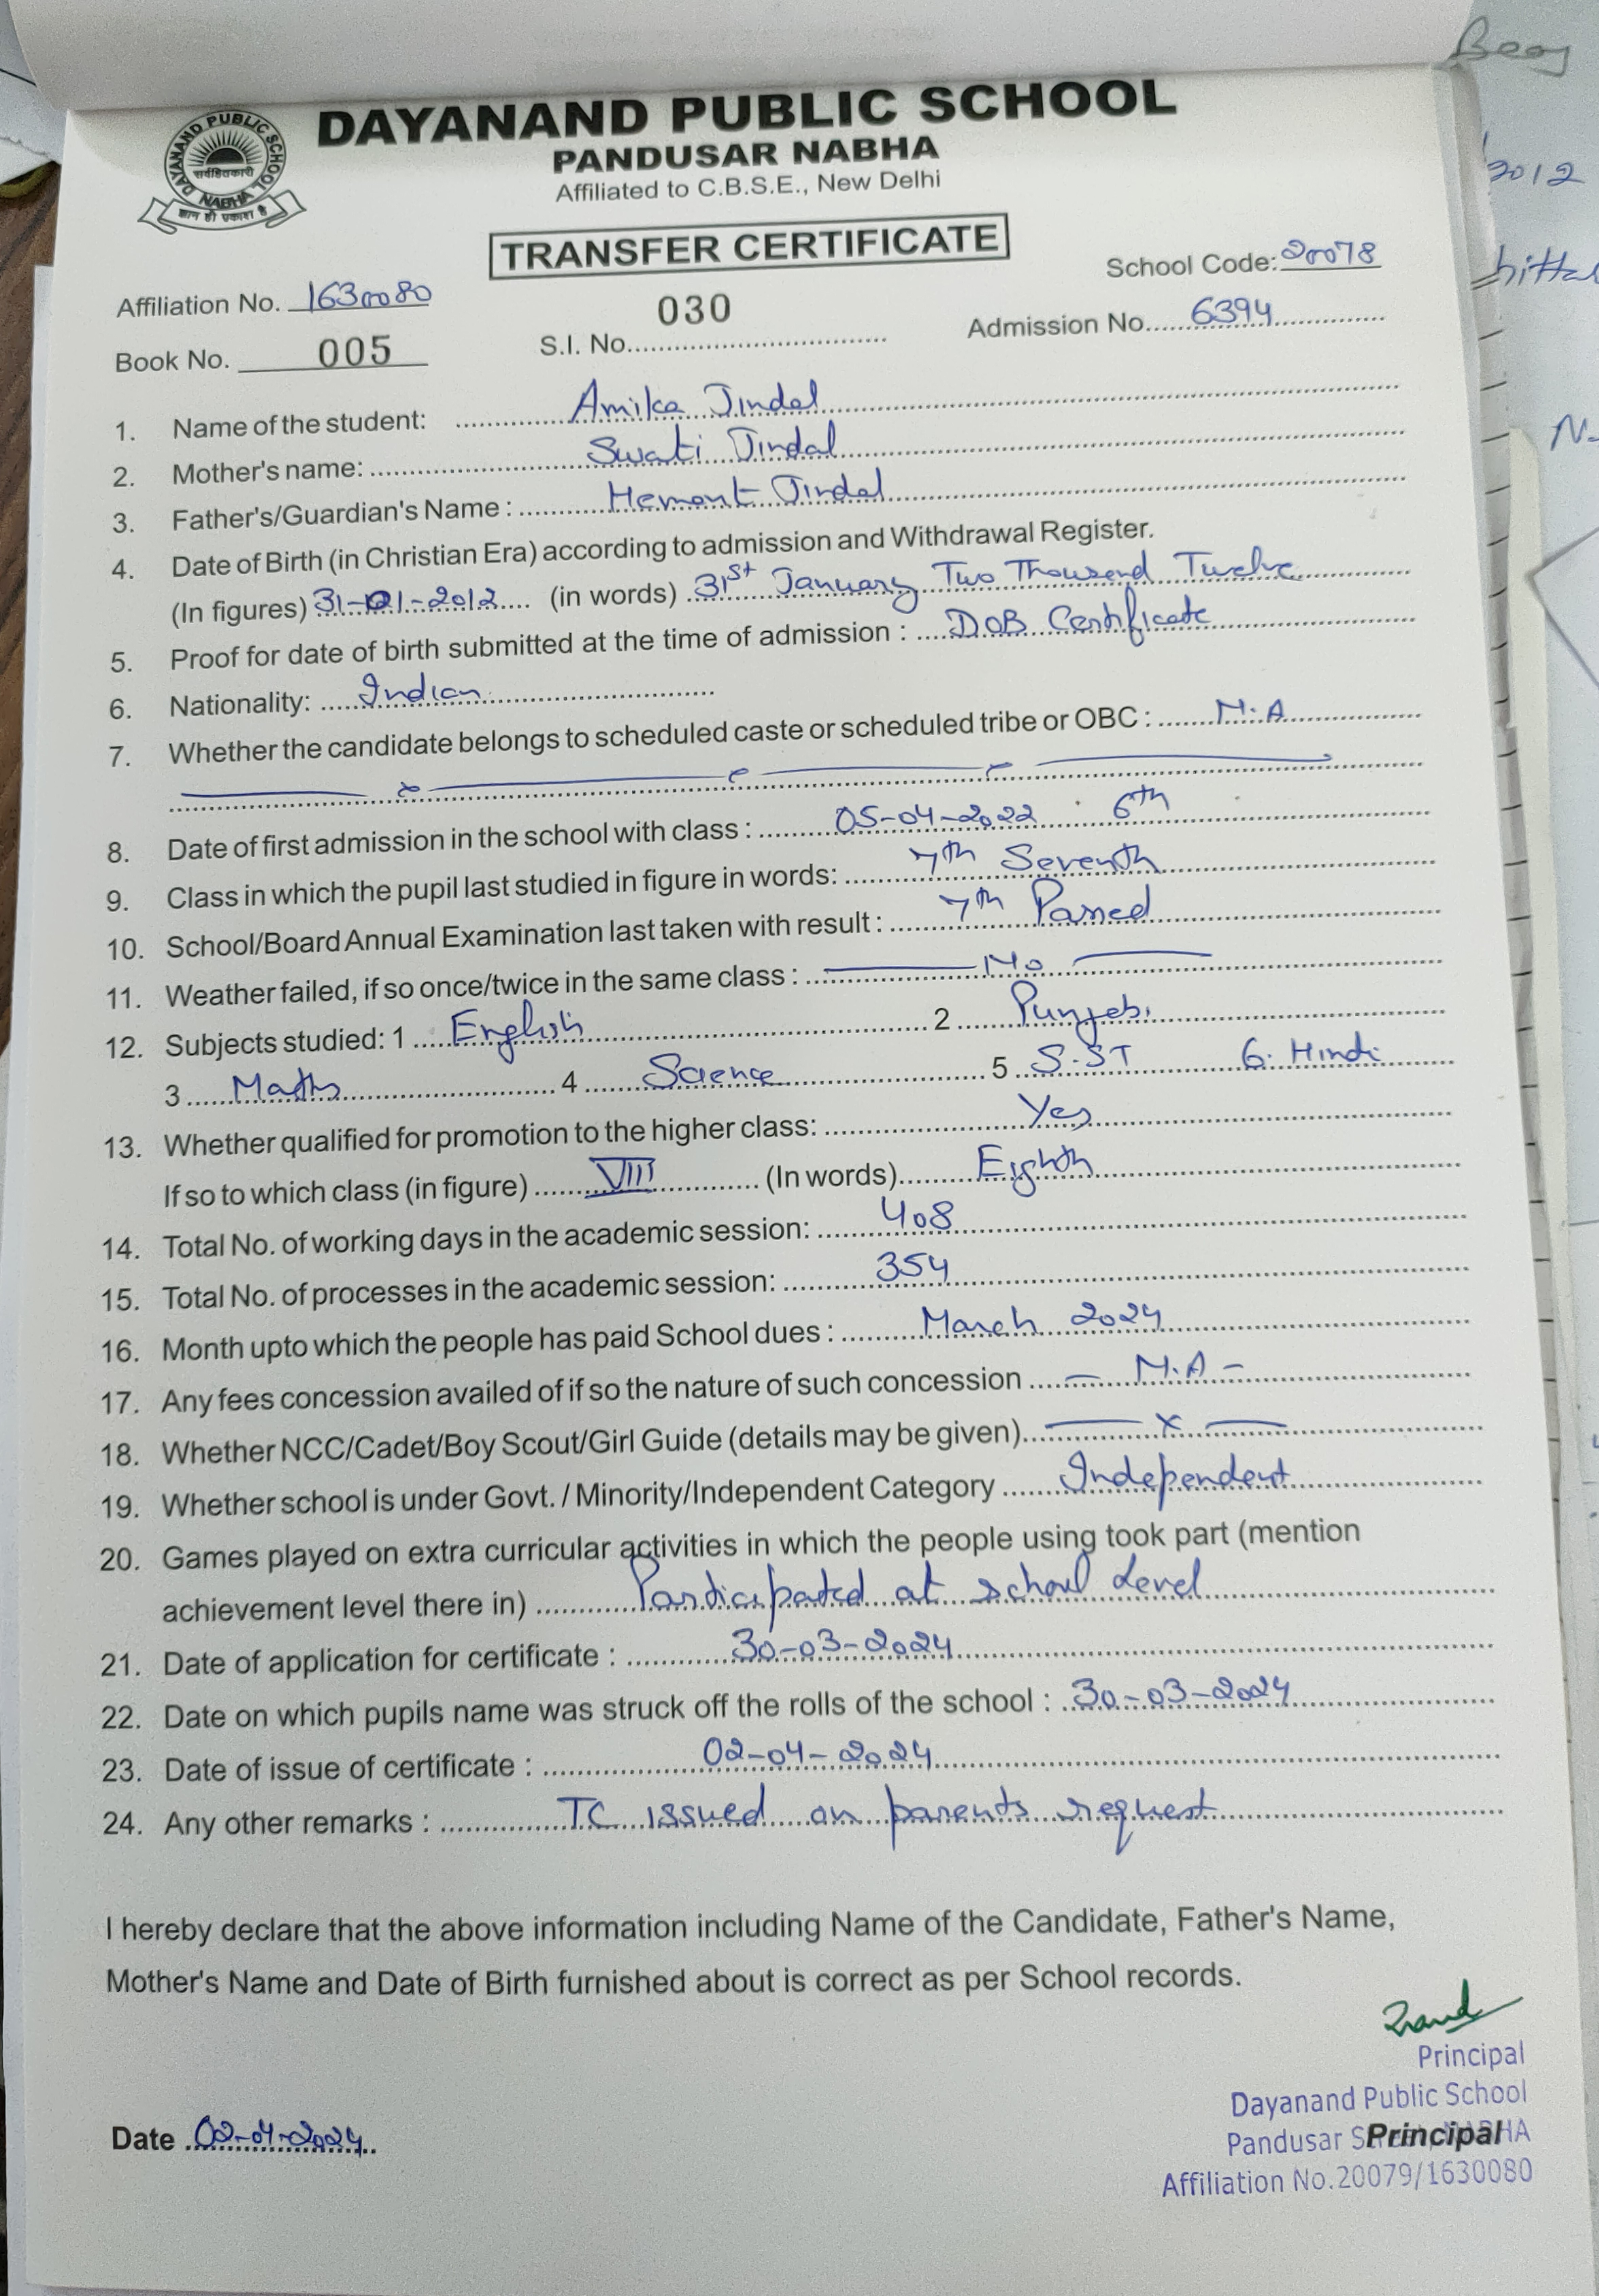 Beoy
DAYANAND PUBLIC SCHOOL
PANDUSAR NABHA
Affiliated to C.B.S.E., New Delhi
DAYANAND PUBLIC SCHOOL
सर्वहितकारी
NABHA
ज्ञान ही प्रकाश है
2012
TRANSFER CERTIFICATE
School Code: 20078
Affiliation No. 1630080
030
Book No. 005 S.I. No. Admission No. 6394
1. Name of the student: Amika Jindal
2. Mother's name: Swati Jindal
3. Father's/Guardian's Name : Hemant Jindal
4. Date of Birth (in Christian Era) according to admission and Withdrawal Register.
(In figures) 31-01-2012 (in words) 31st January Two Thousand Twelve
5. Proof for date of birth submitted at the time of admission : DOB Certificate
6. Nationality: Indian
7. Whether the candidate belongs to scheduled caste or scheduled tribe or OBC : N.A
8. Date of first admission in the school with class : 05-04-2022 6th
9. Class in which the pupil last studied in figure in words: 7th Seventh
10. School/Board Annual Examination last taken with result : 7th Passed
11. Weather failed, if so once/twice in the same class : No
12. Subjects studied: 1 English 2 Punjabi
3 Maths 4 Science 5 S.ST 6. Hindi
13. Whether qualified for promotion to the higher class: Yes
If so to which class (in figure) VIII (In words) Eighth
14. Total No. of working days in the academic session: 408
15. Total No. of processes in the academic session: 354
16. Month upto which the people has paid School dues : March 2024
17. Any fees concession availed of if so the nature of such concession — N.A –
18. Whether NCC/Cadet/Boy Scout/Girl Guide (details may be given) — x —
19. Whether school is under Govt. / Minority/Independent Category Independent
20. Games played on extra curricular activities in which the people using took part (mention
achievement level there in) Participated at school level
21. Date of application for certificate : 30-03-2024
22. Date on which pupils name was struck off the rolls of the school : 30-03-2024
23. Date of issue of certificate : 02-04-2024
24. Any other remarks : TC issued on parents request
I hereby declare that the above information including Name of the Candidate, Father's Name,
Mother's Name and Date of Birth furnished about is correct as per School records.
Principal
Dayanand Public School
Pandusar Street, NABHA
Principal
Affiliation No.20079/1630080
Date 02-04-2024